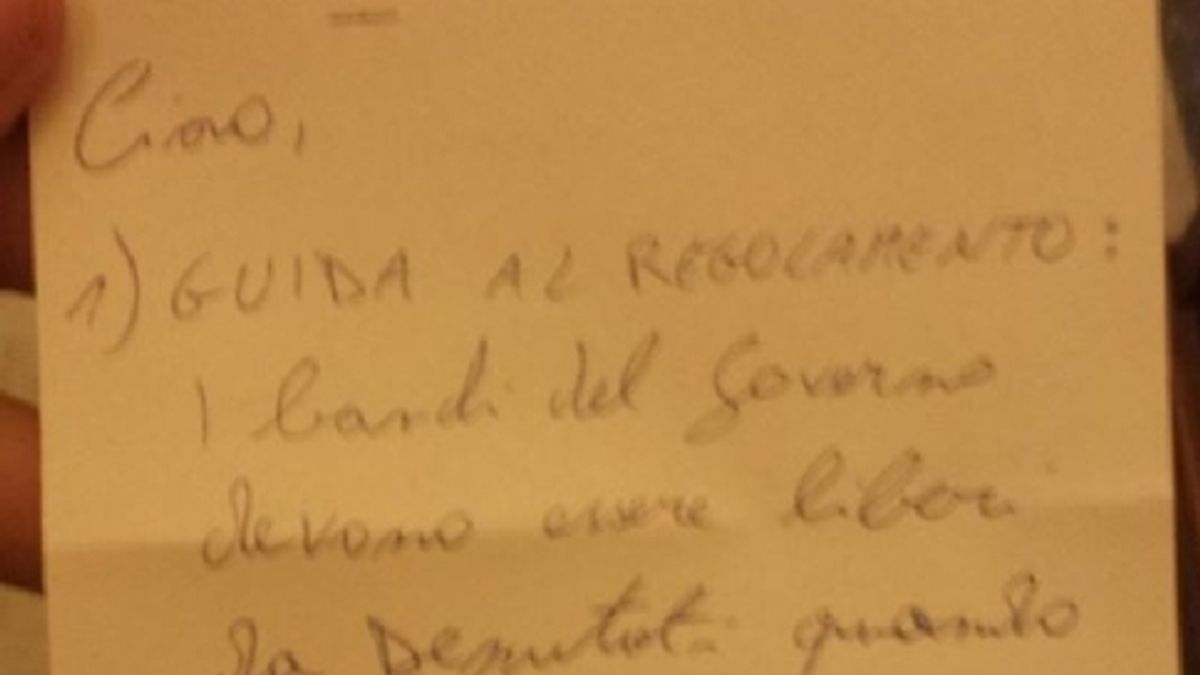 Ciao,
1) GUIDA AL REGOLAMENTO:
I bandi del Governo
devono essere liberi
da Deputati quando